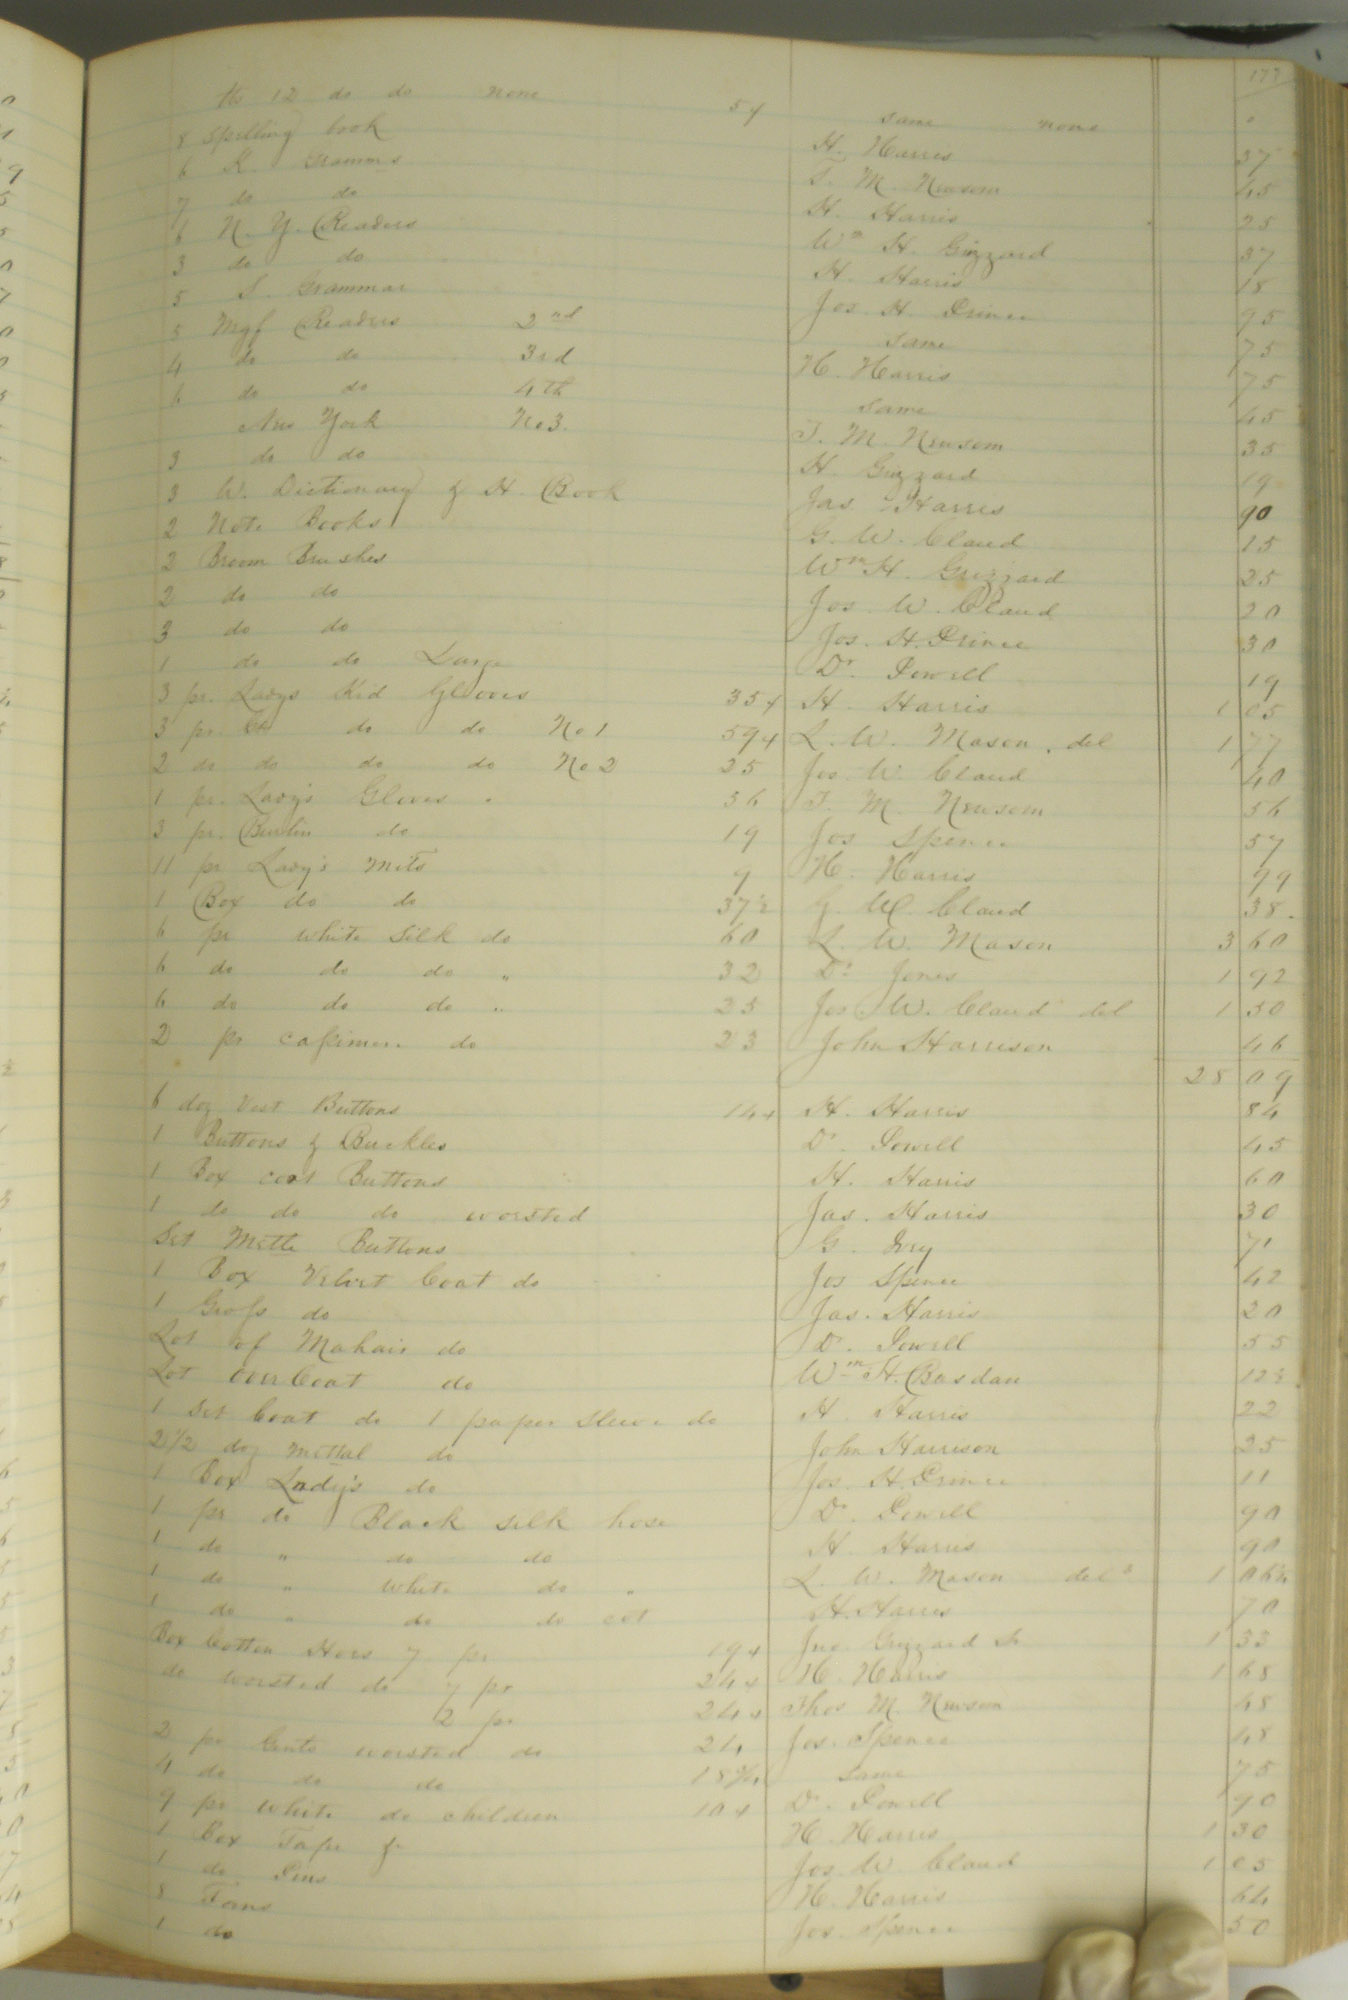 177
ths 12 do do none 5 4 same none 0
8 Spelling book H. Harris 37
6 S. Gramms T. M. Newsom 45
7 do do H. Harris 25
6 N. Y. Readers Wm H. Grizzard 37
3 do do H. Harris 18
5 S. Grammar Jos. H. Prince 95
5 Mgf Readers 2nd same 75
4 do do 3rd H. Harris 75
6 do do 4th same 45
New York No 3. T. M. Newsom 35
3 do do H. Grizzard 19
3 W. Dictionary & H. Book Jas Harris 90
2 Note Books G. W. Claud 15
2 Broom Brushes Wm H. Grizzard 25
2 do do Jos. W. Claud 20
3 do do Jos. H. Prince 30
1 do do Large Dr. Powell 19
3 pr. Ladys Kid Gloves 35 4 H. Harris 1 05
3 pr. do do No 1 59 4 L. W. Mason, del 1 77
2 do do do do No 2 25 Jos. W. Claud 40
1 pr. Lady's Gloves 56 T. M. Newsom 56
3 pr. Burlin do 19 Jos Spence 57
11 pr Lady's Mits 9 H. Harris 99
1 Box do do 37½ G. W. Claud 38.
6 pr white Silk do 60 L. W. Mason 3 60
6 do do do " 32 Dr Jones 1 92
6 do do do " 25 Jos. W. Claud del 1 50
2 pr casimere do 23 John Harrison 46
28 09
6 doz Vest Buttons 14 4 H. Harris 84
1 Buttons & Buckles Dr. Powell 45
1 Box coat Buttons H. Harris 60
1 do do do worsted Jas. Harris 30
Set Mettle Buttons G. Ivey 71
1 Box Velvet Coat do Jos Spence 42
1 Gross do Jas. Harris 20
Lot of Mohair do Dr. Powell 55
Lot over Coat do Wm H. Basdan 12½
1 Set Coat do 1 paper Sleeve do H. Harris 22
2 1/2 doz mettal do John Harrison 25
1 Box Lady's do Jos. H. Prince 11
1 pr do Black silk hose Dr. Powell 90
1 do " do do H. Harris 90
1 do " White do " L. W. Mason deld 1 06¼
1 do " do do cot H. Harris 70
Box Cotton Hors 7 pr 19 4 Jno. Grizzard Sr 1 33
do worsted do 7 pr 24 4 H. Harris 1 68
2 pr 24 4 Thos M. Newsom 48
2 pr Gents worsted do 24 Jos. Spence 48
4 do do do 18¾ same 75
9 pr White do children 10 4 Dr. Powell 90
1 Box Tape & H. Harris 1 30
1 do Pins Jos. W. Claud 1 05
8 Fans H. Harris 64
1 do Jos. Spence 50